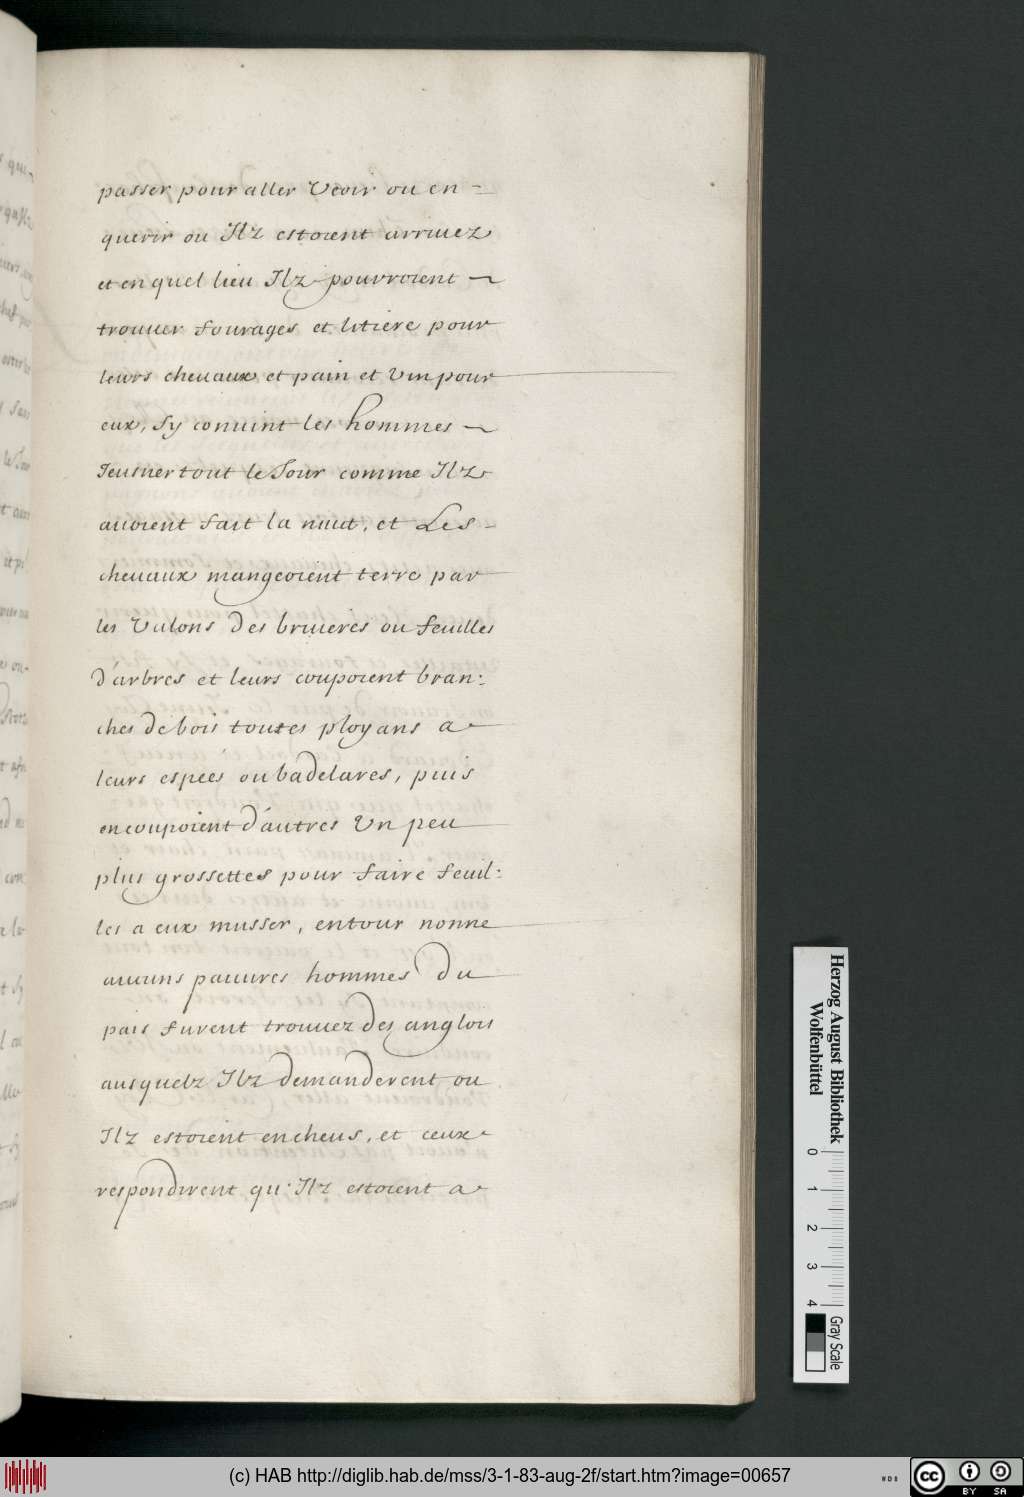 passer pour aller Veoir ou en-
querir ou Ilz estoient arriuez
et en quel lieu Ilz pourroient
trouuer fourages et litiere pour
leurs cheuaux et pain et vin pour
eux, sy conuint les hommes
Ieusner tout le Jour comme Ilz
auoient fait la nuict, et Les
cheuaux mangeoient terre par
les Valons des bruieres ou feuilles
d'arbres et leurs coupoient bran:
ches de bois toutes ployans a
leurs espées ou badelares, puis
en coupoient d'autres Vn peu
plus grossettes pour faire feuil:
les a eux musser, entour nonne
aucuns pauures hommes du
pais furent trouuez des anglois
ausquelz Ilz demanderent ou
Ilz estoient encheus, et ceux
respondirent qu'Ilz estoient a
Herzog August Bibliothek
Wolfenbüttel
0 1 2 3 4
Gray Scale
(c) HAB http://diglib.hab.de/mss/3-1-83-aug-2f/start.htm?image=00657
cc BY SA